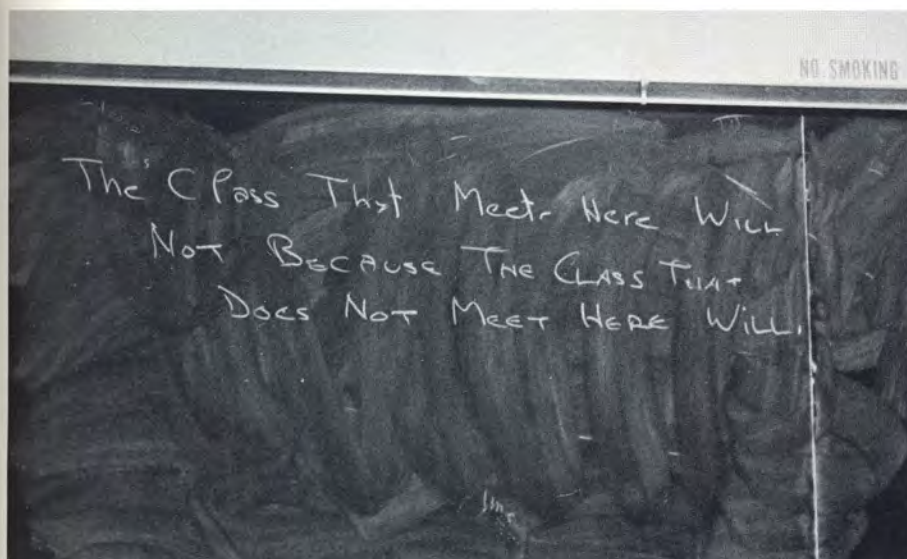 NO SMOKING
The Class That Meets Here Will
Not Because The Class That
Does Not Meet Here Will.